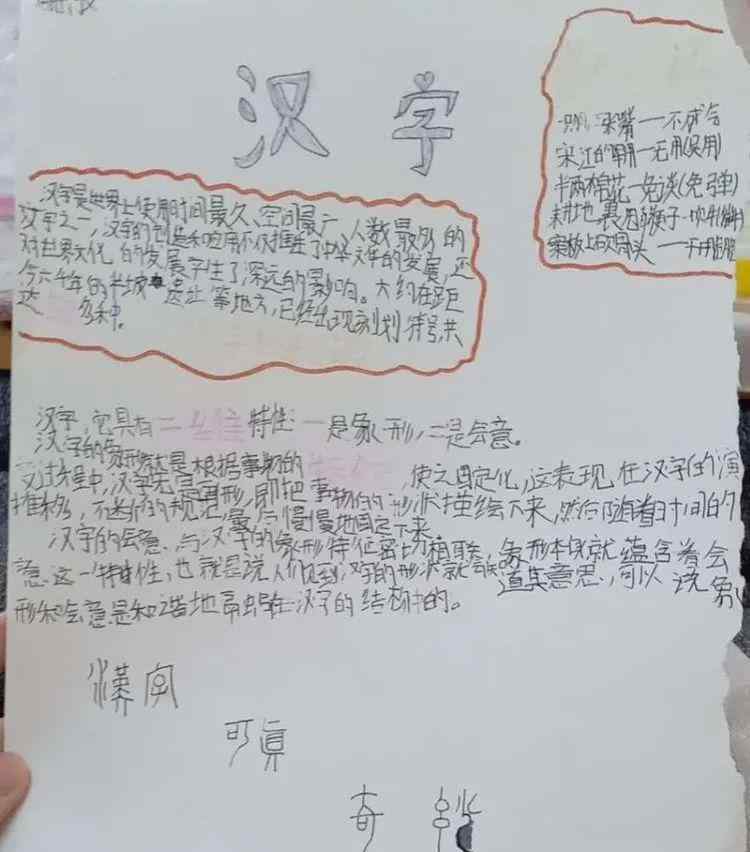 汉字
汉字是世界上使用时间最久、空间最广、人数最多的
文字之一,汉字的创造和应用不仅推进了中华文化的发展,还
对世界文化的发展产生了深远的影响。大约在距
今六千年的半坡遗址等地方,已经出现刻划符号,共
达 多种。
不成气
宋江的 —无用(吴用)
半两棉花—免谈(免弹)
耕地
案板上 骨头
汉字,它具有二 特性:一是象形,二是会意。
汉字的象形就是根据事物的 ,使之固定化,这表现在汉字的演
变过程中,汉字先是画形,即把事物的形状描绘下来,然后随着时间的
推移,不断的规范,最后慢慢地固定下来。
汉字的会意,与汉字的象形特征密切相联,象形本身就蕴含着会
意这一特性,也就是说人们见到汉字的形状就会知道其意思,可以说象
形和会意是和谐地 在汉字的结构中的。
漢字
可真
奇